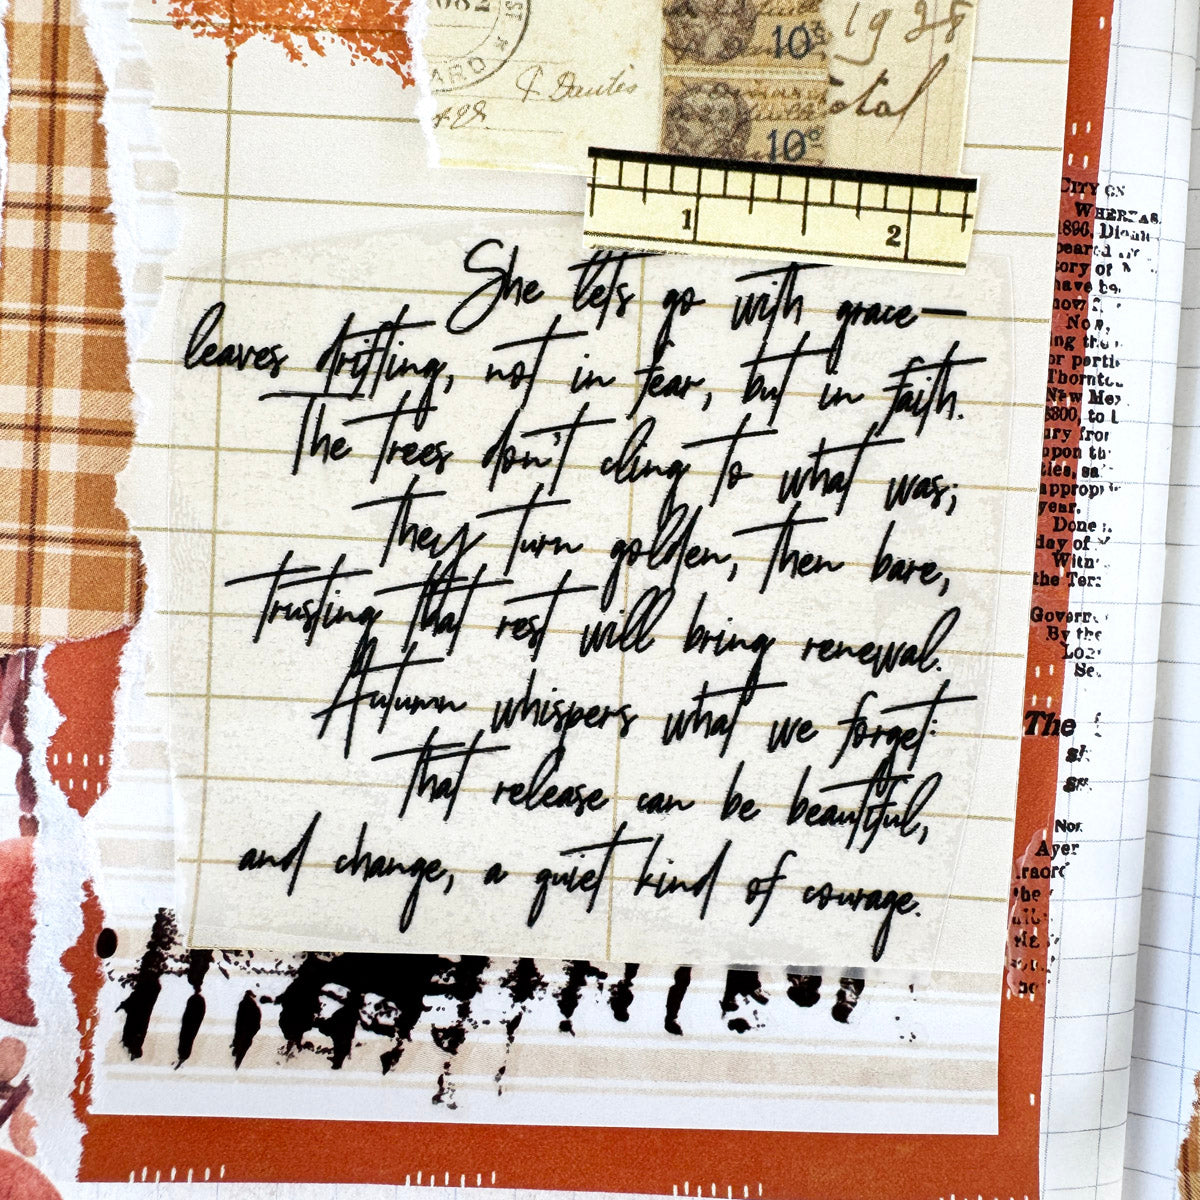 10¢
1928
J. Dautis
Total
10¢
1 2
She lets go with grace—
leaves drifting, not in fear, but in faith.
The trees don't cling to what was;
they turn golden, then bare,
trusting that rest will bring renewal.
Autumn whispers what we forget:
that release can be beautiful,
and change, a quiet kind of courage.
CITY
WHEREAS
1896,
peared
tory of
have be
Now,
ing the
or
New Mex
to
ury from
upon th
appropri
year.
Done
day of
Witn
the Terr
Govern
By the
The
Nor.
Ayer
the